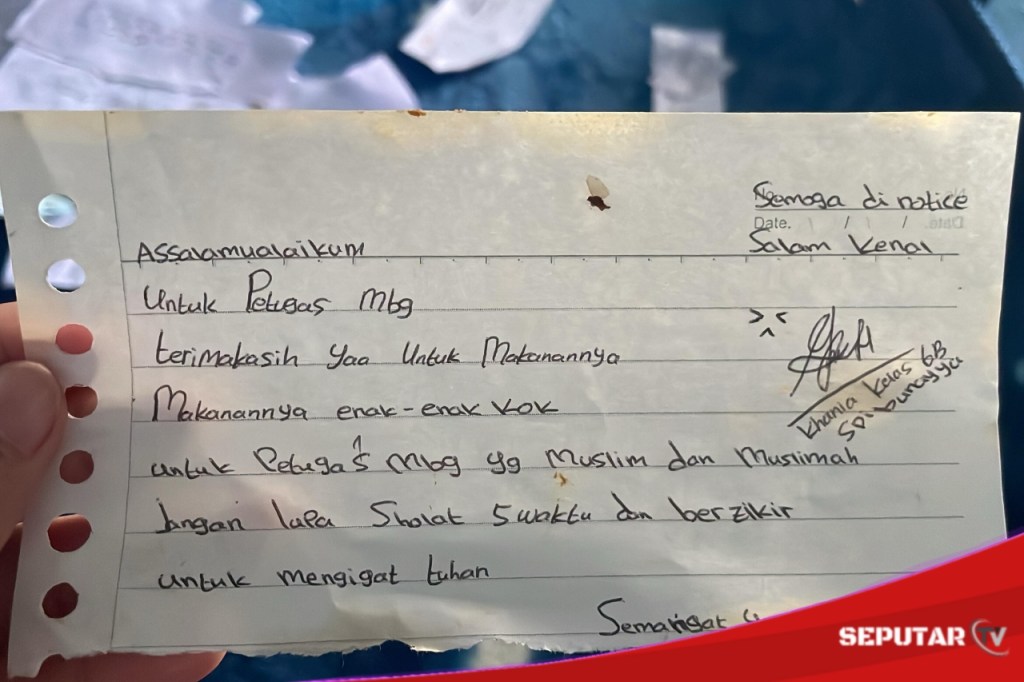 Semoga di notice
Date. / /
Salam kenal
Assalamualaikum
Untuk Petugas Mbg
terimakasih yaa Untuk Makanannya
Makanannya enak-enak kok
untuk Petugas Mbg yg Muslim dan Muslimah
Jangan lupa Sholat 5 waktu dan berzikir
untuk mengigat tuhan
Semangat
khania kelas 6B
SDi bunayya
SEPUTAR TV